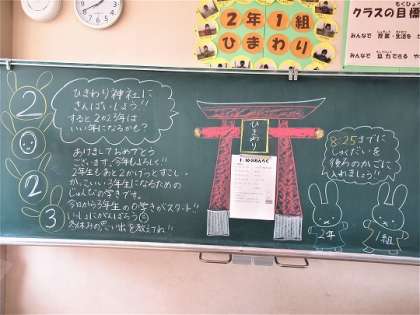 2年1組
ひまわり
クラスの目標
もくひょう
みんなで
みんなで
2
0
2
3
ひまわり神社に
さんぱいしよう!!
すると2023年は
いい年になるかも?
あけましておめでとう
ございます。今年もよろしく!!
2年生もあと2か月とすこし。
かっこいい3年生になるための
じゅんびの学きです。
今日から3年生の0学きがスタート!!
いっしょにがんばろう
冬休みの思い出を教えてね!!
ひまわり
8:25までに
しゅくだいを
後ろのかごに
入れましょう!!
2年
1組